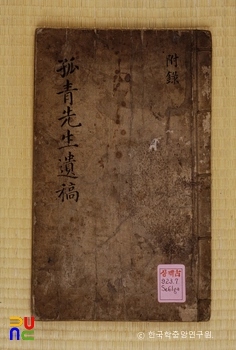 孤青先生遺稿
附錄
923.7
© 한국학중앙연구원